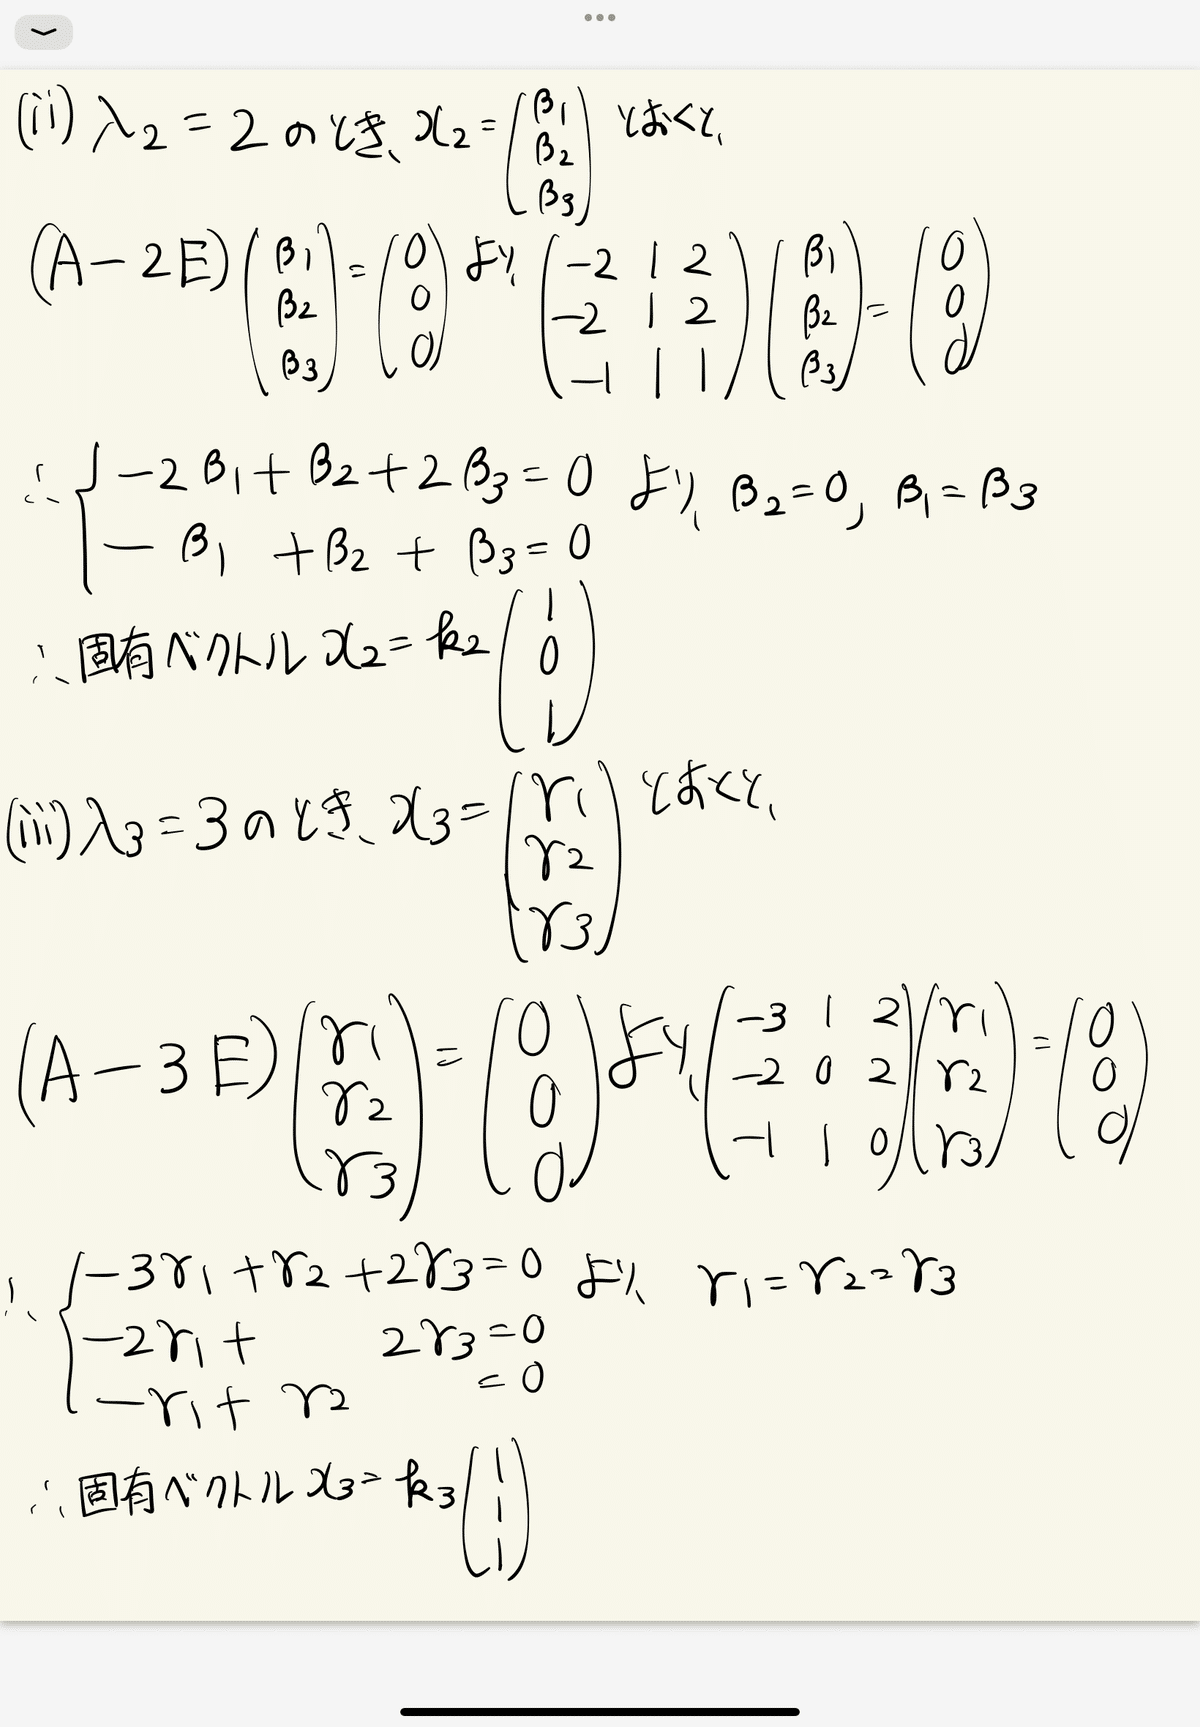 (ii) λ2 = 2 のとき、x2 = (β1 β2 β3) とおくと、
(A − 2E)(β1 β2 β3) = (0 0 0) より、(−2 1 2 / −2 1 2 / −1 1 1)(β1 β2 β3) = (0 0 0)
∴ { −2β1 + β2 + 2β3 = 0 より、β2 = 0, β1 = β3
− β1 + β2 + β3 = 0
∴ 固有ベクトル x2 = k2 (1 0 1)
(iii) λ3 = 3 のとき、x3 = (γ1 γ2 γ3) とおくと、
(A − 3E)(γ1 γ2 γ3) = (0 0 0) より、(−3 1 2 / −2 0 2 / −1 1 0)(γ1 γ2 γ3) = (0 0 0)
∴ { −3γ1 + γ2 + 2γ3 = 0 より、γ1 = γ2 = γ3
−2γ1 + 2γ3 = 0
−γ1 + γ2 = 0
∴ 固有ベクトル x3 = k3 (1 1 1)